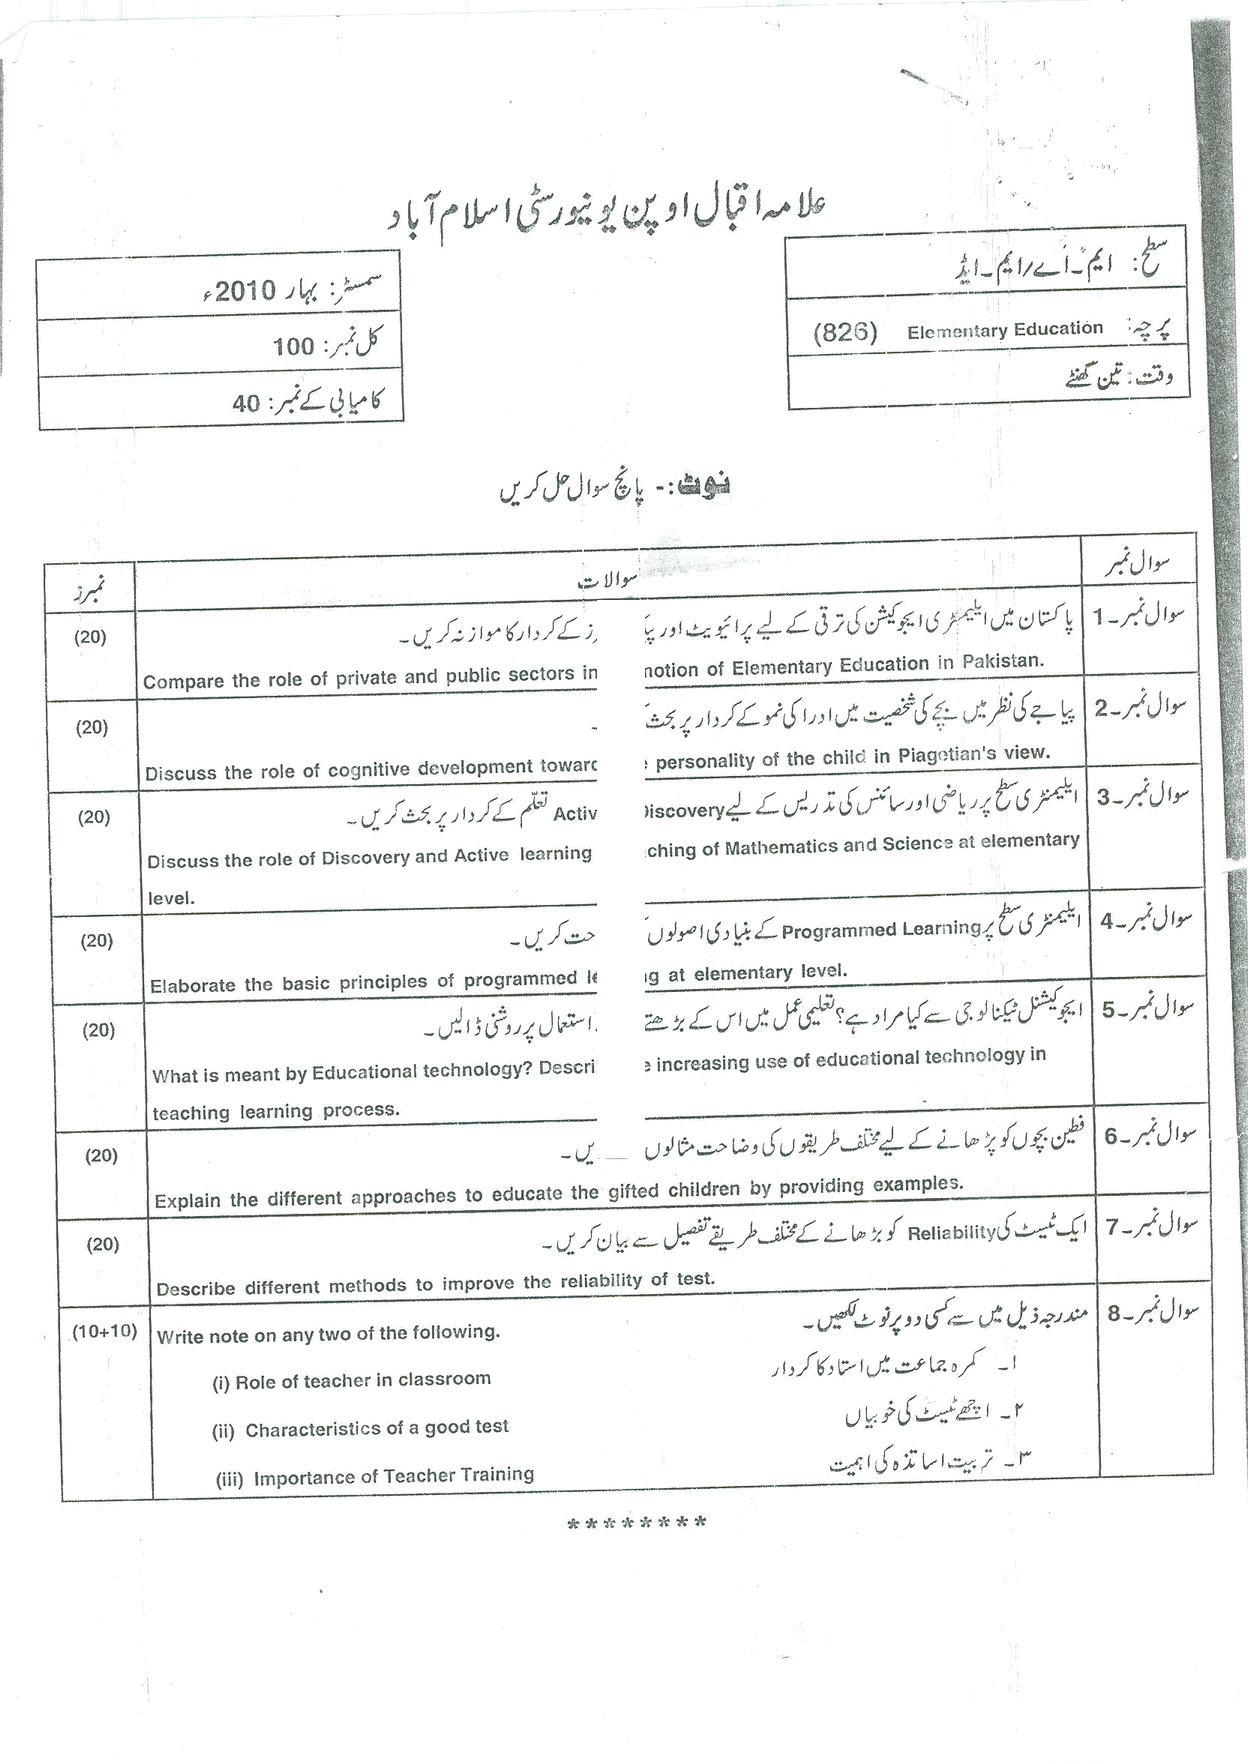 علامہ اقبال اوپن یونیورسٹی اسلام آباد
سطح: ایم۔اے/ایم۔ایڈ
پرچہ: Elementary Education (826)
وقت: تین گھنٹے
سمسٹر: بہار 2010ء
کل نمبر: 100
کامیابی کے نمبر: 40
نوٹ:- پانچ سوال حل کریں
سوال نمبر سوالات نمبرز
سوال نمبر۔1 پاکستان میں ایلیمنٹری ایجوکیشن کی ترقی کے لیے پرائیویٹ اور کے کردار کا موازنہ کریں۔ (20)
Compare the role of private and public sectors in of Elementary Education in Pakistan.
سوال نمبر۔2 پیاجے کی نظر میں بچے کی شخصیت میں ادراکی نمو کے کردار پر بحث ۔ (20)
Discuss the role of cognitive development personality of the child in Piagetian's view.
سوال نمبر۔3 ایلیمنٹری سطح پر ریاضی اور سائنس کی تدریس کے لیے Discovery تعلّم کے کردار پر بحث کریں۔ (20)
Discuss the role of Discovery and Active learning of Mathematics and Science at elementary
level.
سوال نمبر۔4 ایلیمنٹری سطح پر Programmed Learning کے بنیادی اصولوں کریں۔ (20)
Elaborate the basic principles of programmed at elementary level.
سوال نمبر۔5 ایجوکیشنل ٹیکنالوجی سے کیا مراد ہے؟ تعلیمی عمل میں اس کے بڑھتے استعمال پر روشنی ڈالیں۔ (20)
What is meant by Educational technology? increasing use of educational technology in
teaching learning process.
سوال نمبر۔6 فطین بچوں کو پڑھانے کے لیے مختلف طریقوں کی وضاحت مثالوں (20)
Explain the different approaches to educate the gifted children by providing examples.
سوال نمبر۔7 ایک ٹیسٹ کی Reliability کو بڑھانے کے مختلف طریقے تفصیل سے بیان کریں۔ (20)
Describe different methods to improve the reliability of test.
سوال نمبر۔8 مندرجہ ذیل میں سے کسی دو پر نوٹ لکھیں۔ Write note on any two of the following. (10+10)
۱۔ کمرہ جماعت میں استاد کا کردار (i) Role of teacher in classroom
۲۔ اچھے ٹیسٹ کی خوبیاں (ii) Characteristics of a good test
۳۔ تربیت اساتذہ کی اہمیت (iii) Importance of Teacher Training
********